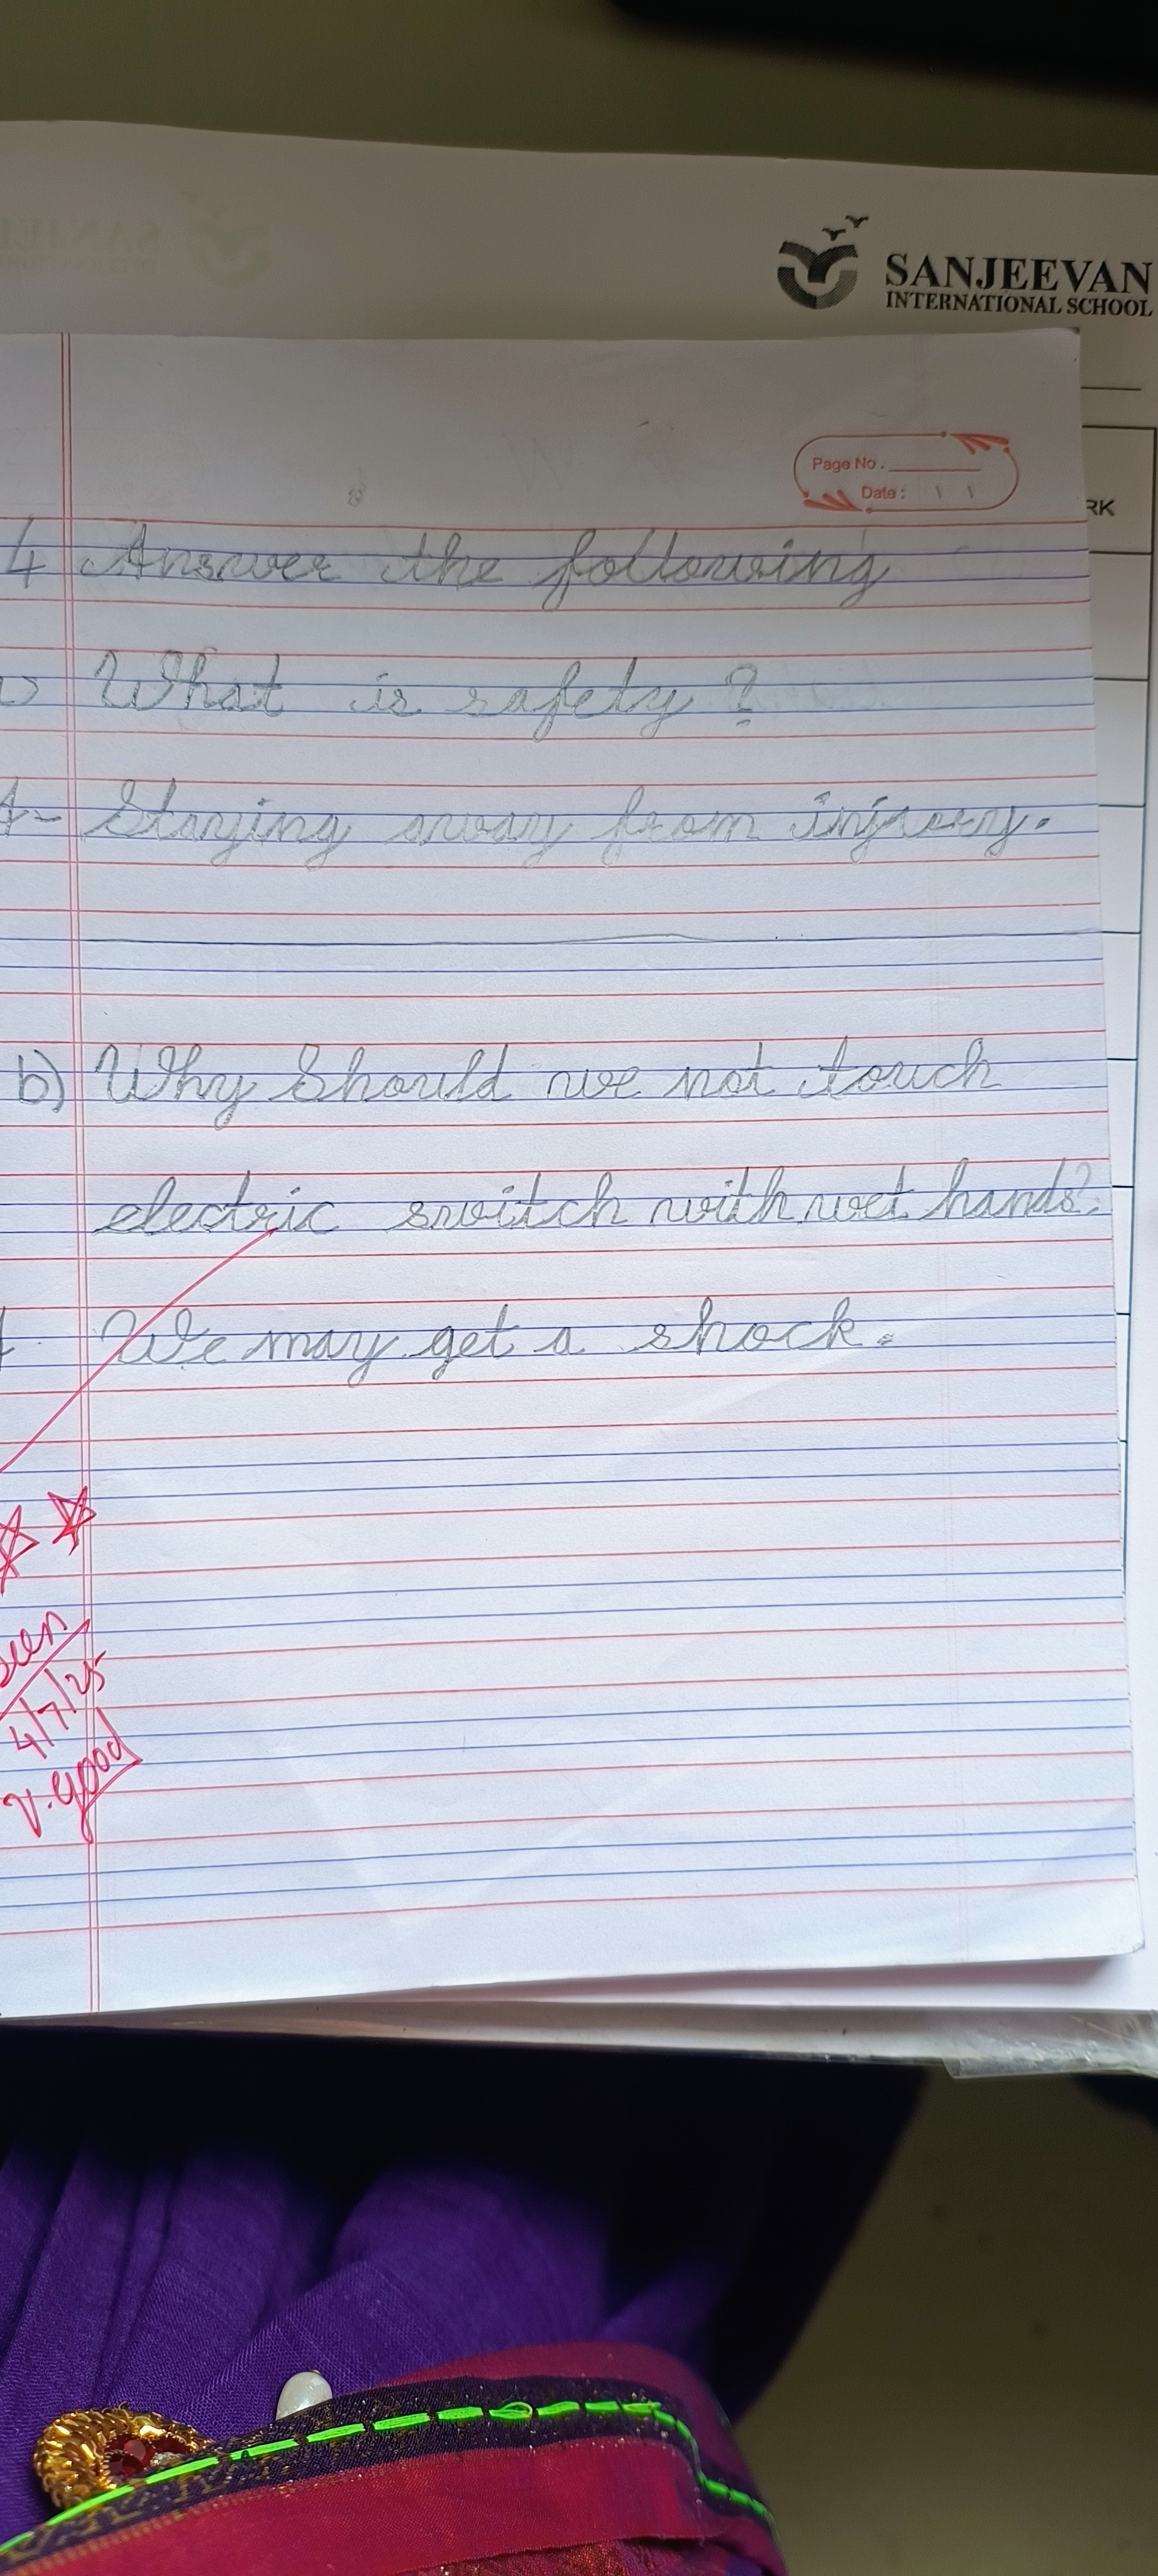 SANJEEVAN
INTERNATIONAL SCHOOL
Page No.
Date:
RK
4 Answer the following
What is safety ?
A- Staying away from injury.
b) Why Should we not touch
electric switch with wet hands?
We may get a shock.
seen
4/7/25
V. good